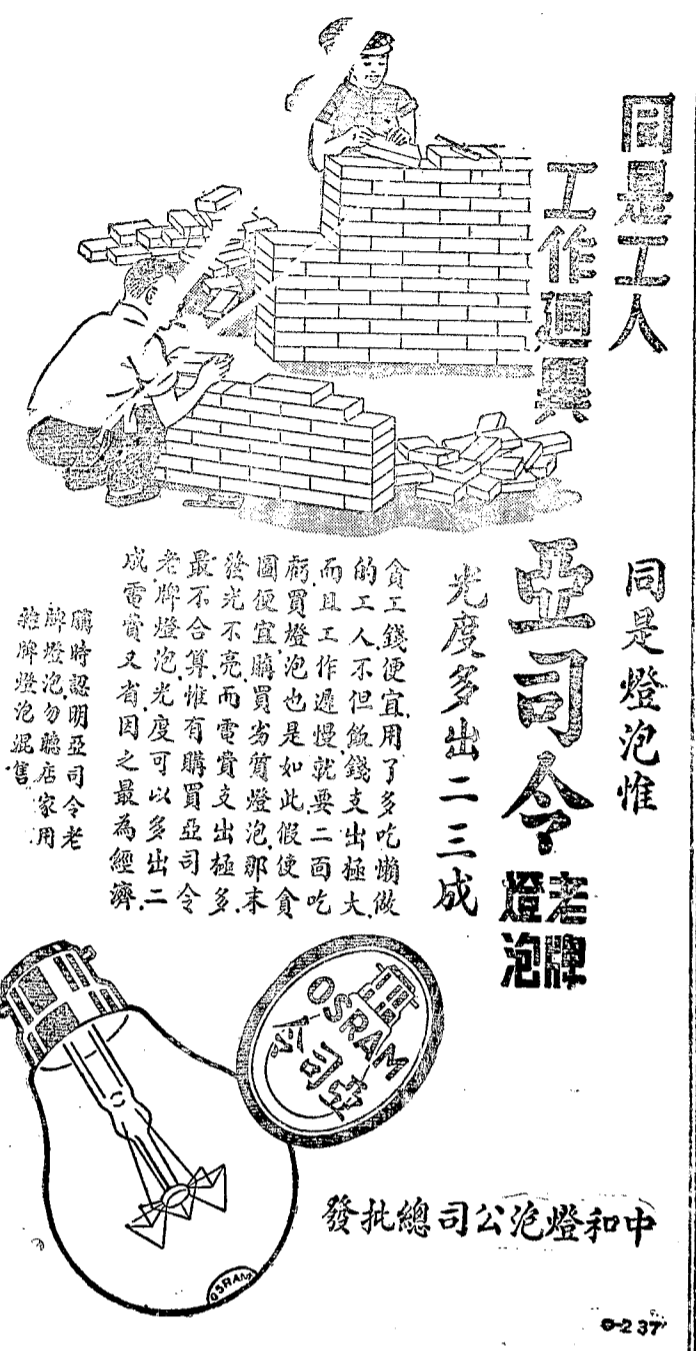 同是工人
工作迴異
同是燈泡惟
亞司令
老牌
燈泡
光度多出二三成
貪工錢便宜用了多吃懶做
的工人不但飯錢支出極大
而且工作遲慢就要二面吃
虧買燈泡也是如此假使貪
圖便宜購買劣質燈泡那末
發光不亮而電費支出極多
最不合算惟有購買亞司令
老牌燈泡光度可以多出二
成電費又省因之最為經濟
購時認明亞司令老
牌燈泡勿聽店家用
雜牌燈泡混售
OSRAM
亞司令
OSRAM
中和燈泡公司總批發
O-2 37